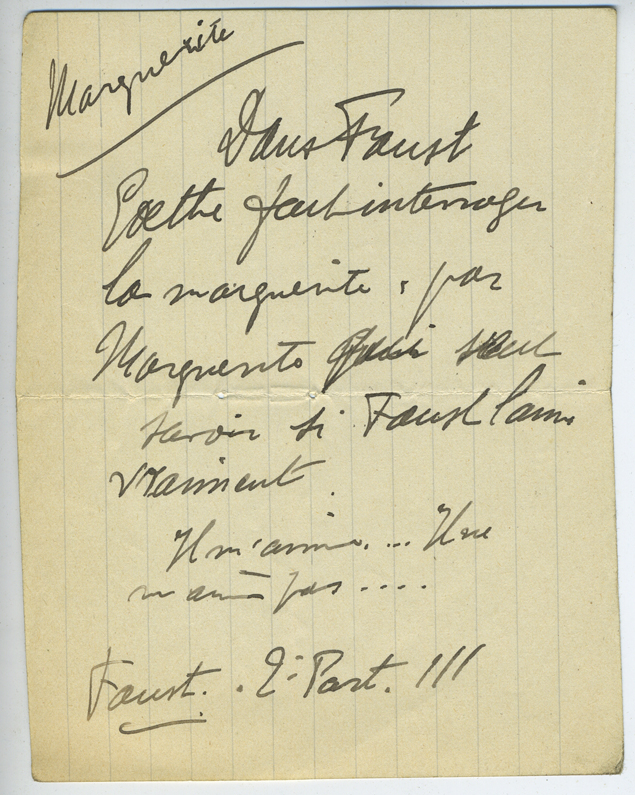 Marguerite
Dans Faust
Goethe fait interroger
la marguerite, par
Marguerite qui veut
savoir si Faust l'aime
vraiment.
Il m'aime.... Il ne
m'aime pas ....
Faust. . 2e Part. !!!